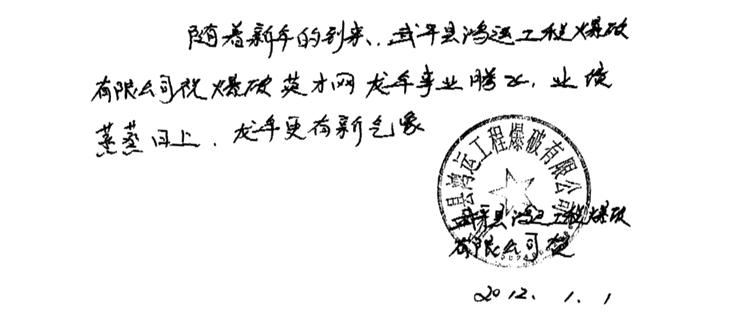 随着新年的到来，武平县鸿运工程爆破
有限公司祝爆破英才网龙年事业腾飞，业绩
蒸蒸日上，龙年更有新气象
县鸿运工程爆破有限公司
武平县鸿运工程爆破
有限公司
2012. 1. 1